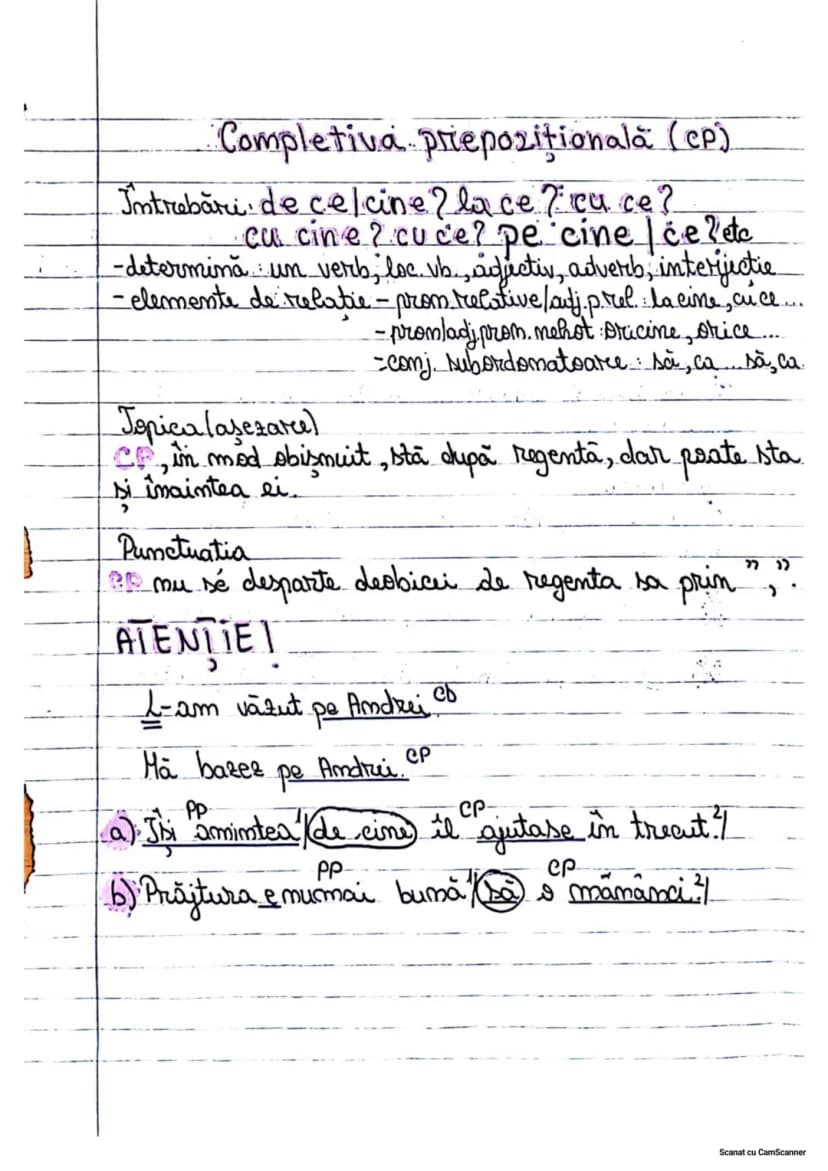 Completiva prepozițională (CP)
Întrebări: de ce/cine? la ce? cu ce?
cu cine? cu ce? pe cine/ce? etc
-determină: un verb, loc. vb., adjectiv, adverb, interjecție
- elemente de relație - pron. relative/adj. p. rel.: la cine, cu ce...
- pron/adj. pron. nehot: oricine, orice...
- conj. subordonatoare: să, ca...să, ca
Topica (așezarea)
CP, în mod obișnuit, stă după regentă, dar poate sta
și înaintea ei.
Punctuatia
CP nu se desparte deobicei de regenta sa prin ",".
ATENȚIE!
L-am văzut pe Andrei. CD
Mă bazez pe Andrei. CP
a) Își PP amintea 1/ de cine îl CP ajutase în trecut. 2/
b) Prăjitura e numai PP bună 1/ să o CP mănânci. 2/
Scanat cu CamScanner